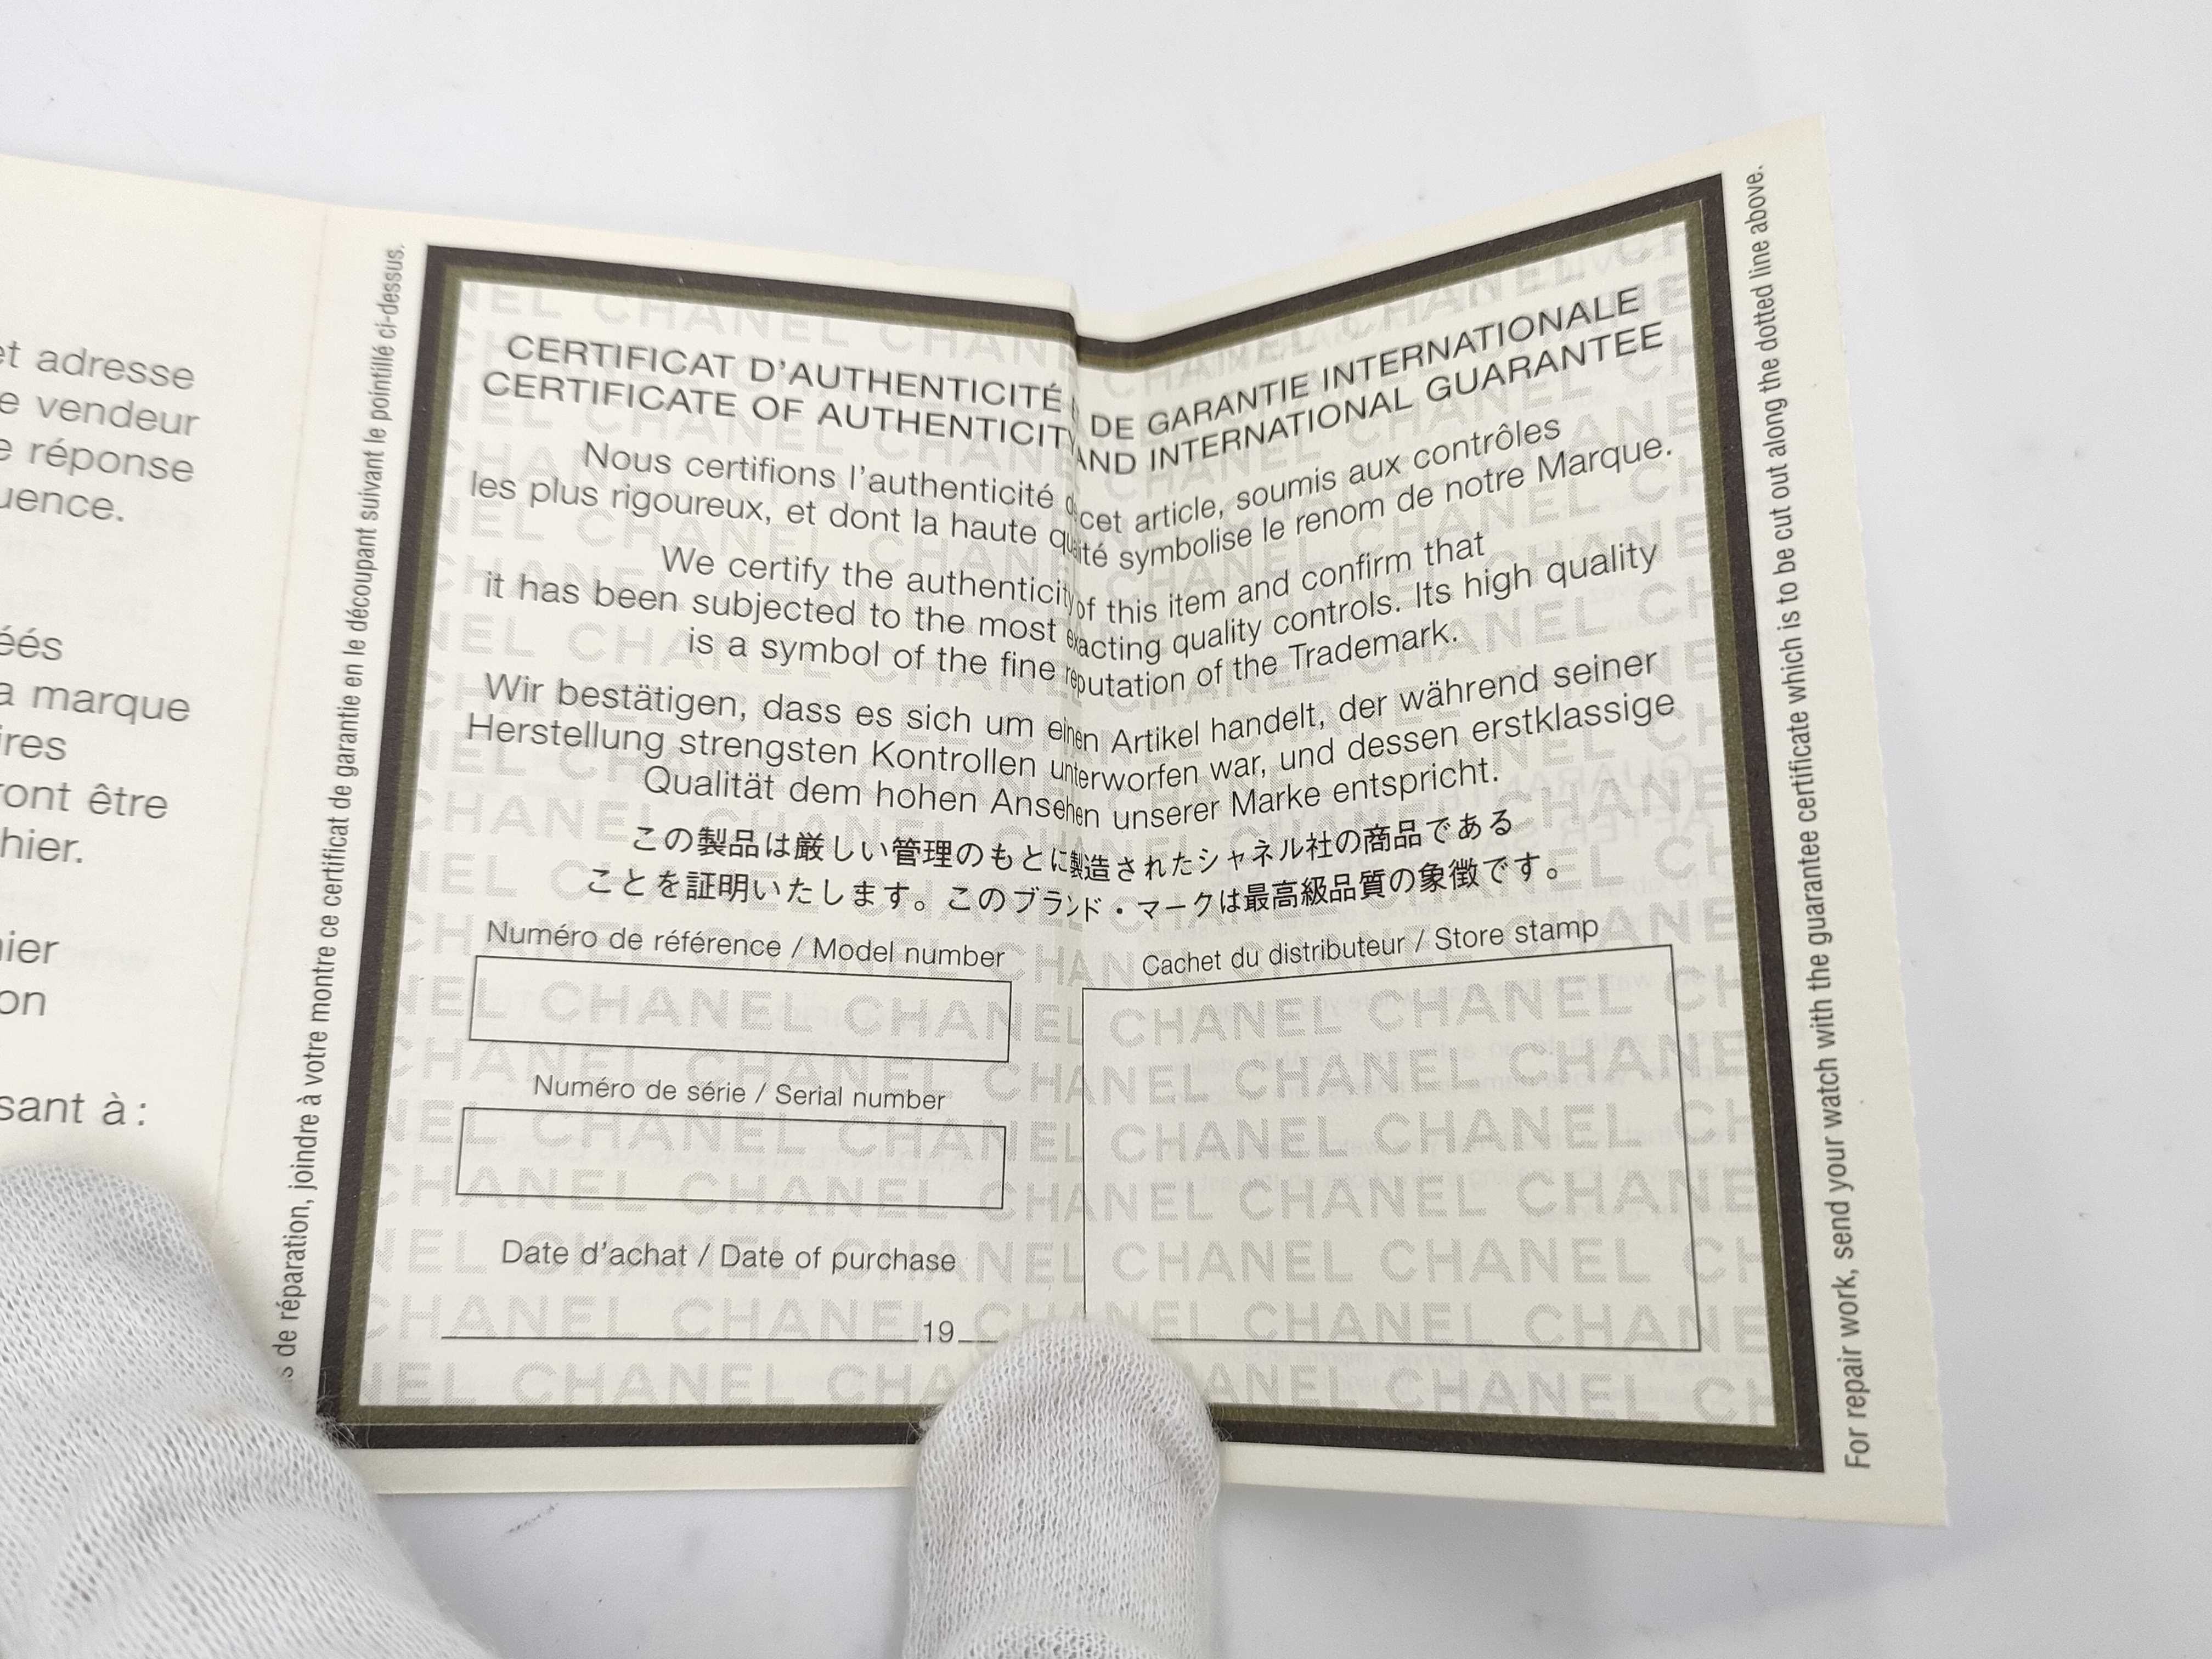 et adresse
vendeur
réponse
marque
être
sant à :
de réparation, joindre à votre montre ce certificat de garantie en le découpant suivant le pointillé ci-dessus.
CERTIFICAT D'AUTHENTICITÉ DE GARANTIE INTERNATIONALE
CERTIFICATE OF AUTHENTICITY AND INTERNATIONAL GUARANTEE
Nous certifions l'authenticité de cet article, soumis aux contrôles
les plus rigoureux, et dont la haute qualité symbolise le renom de notre Marque.
We certify the authenticity of this item and confirm that
it has been subjected to the most exacting quality controls. Its high quality
is a symbol of the fine reputation of the Trademark.
Wir bestätigen, dass es sich um einen Artikel handelt, der während seiner
Herstellung strengsten Kontrollen unterworfen war, und dessen erstklassige
Qualität dem hohen Ansehen unserer Marke entspricht.
この製品は厳しい管理のもとに製造されたシャネル社の商品である
ことを証明いたします。このブランド・マークは最高級品質の象徴です。
Numéro de référence / Model number
Cachet du distributeur / Store stamp
Numéro de série / Serial number
Date d'achat / Date of purchase
19
CHANEL CHANEL CHANEL
For repair work, send your watch with the guarantee certificate which is to be cut out along the dotted line above.